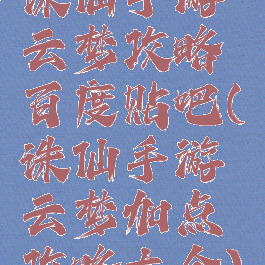 诛仙手游
云梦攻略
百度贴吧(
诛仙手游
云梦加点
攻略大全)